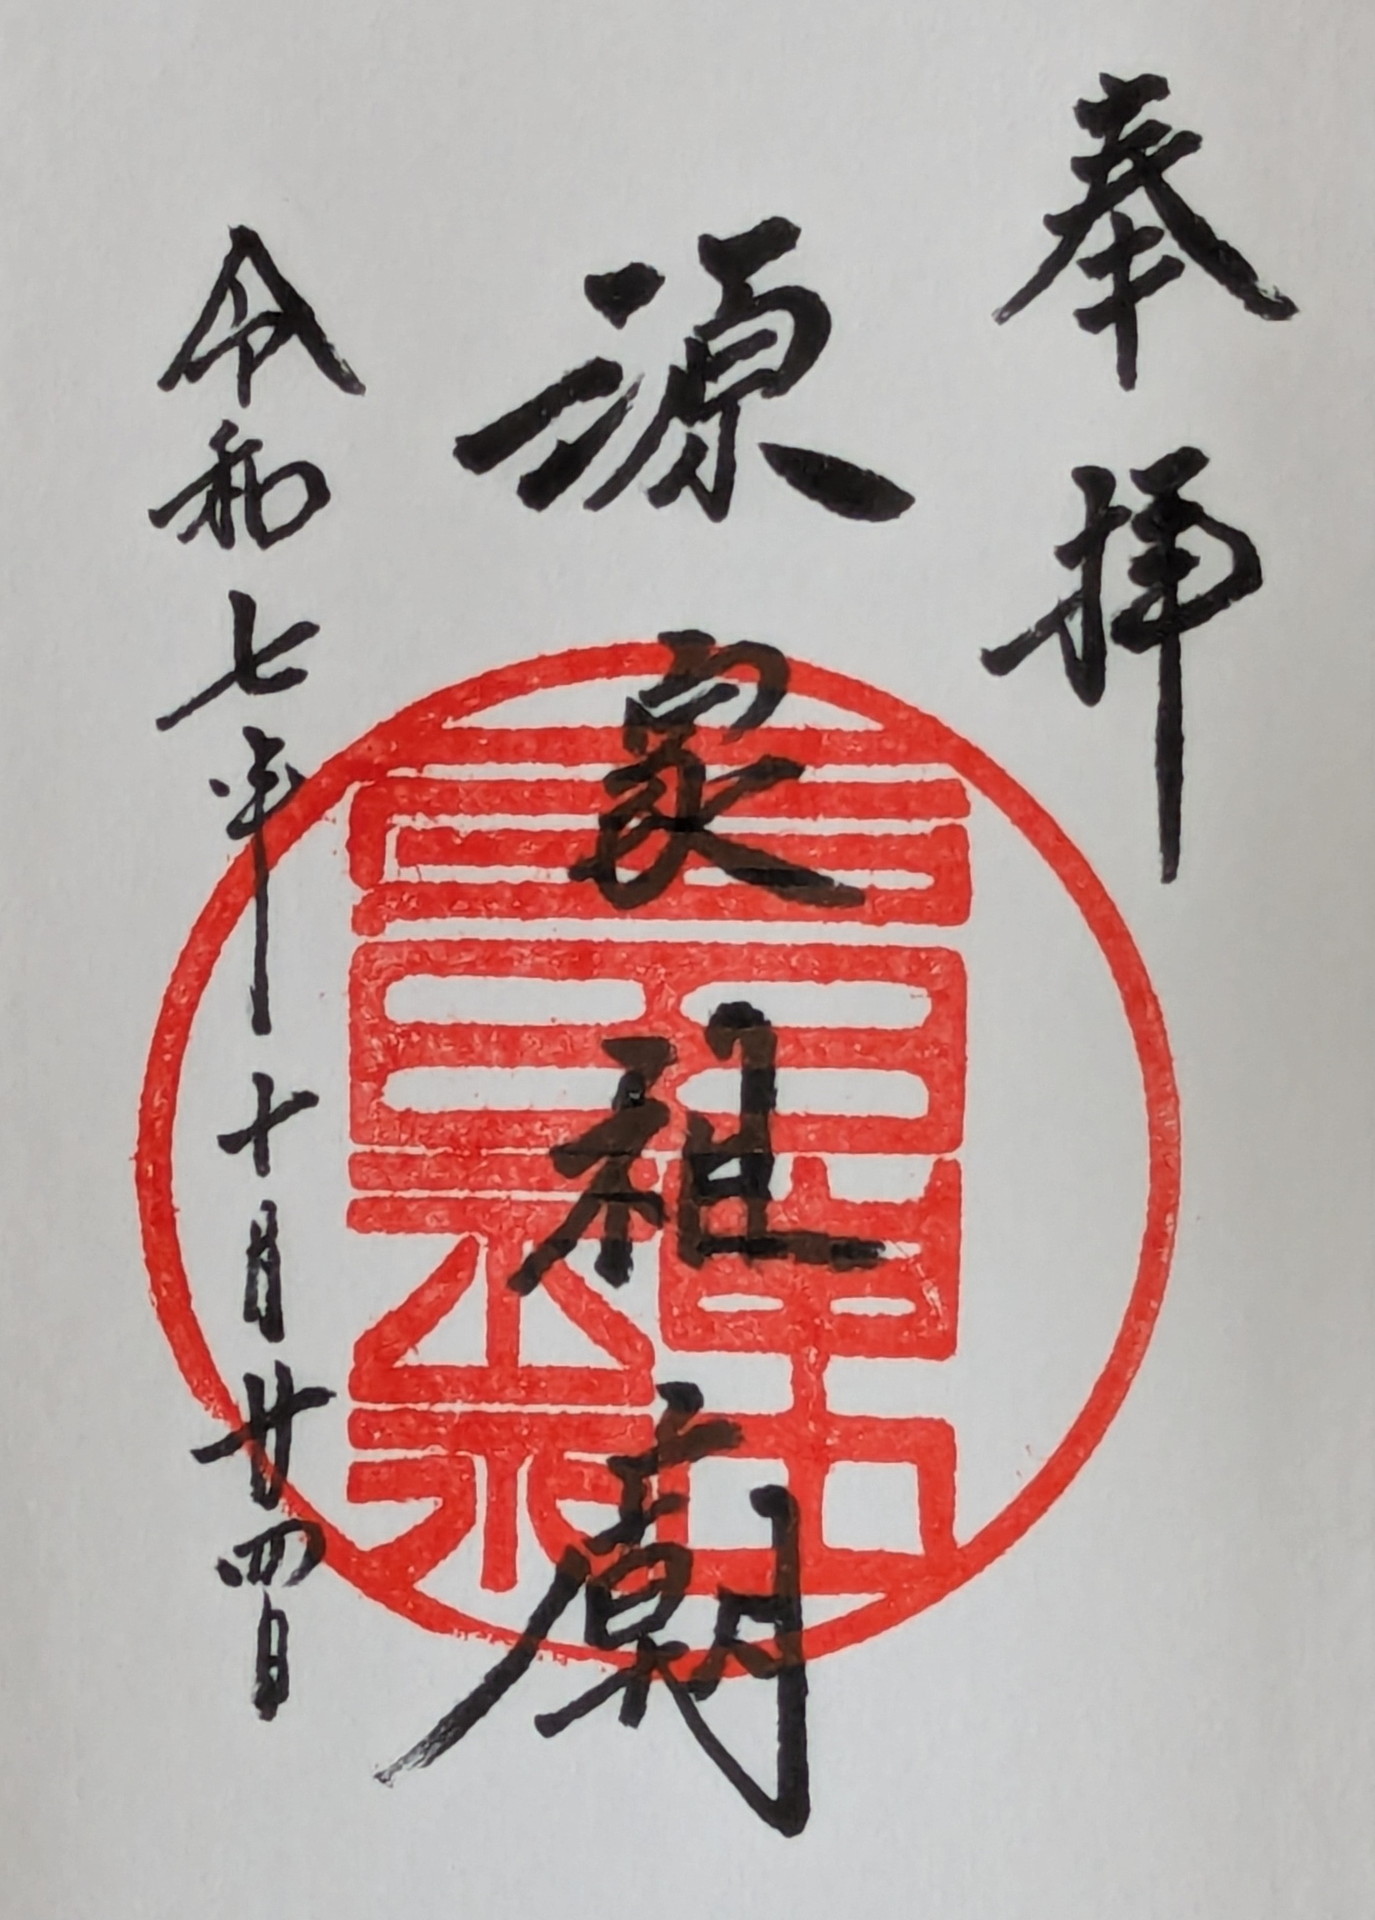 奉拝
源家祖廟
令和七年十月廿四日